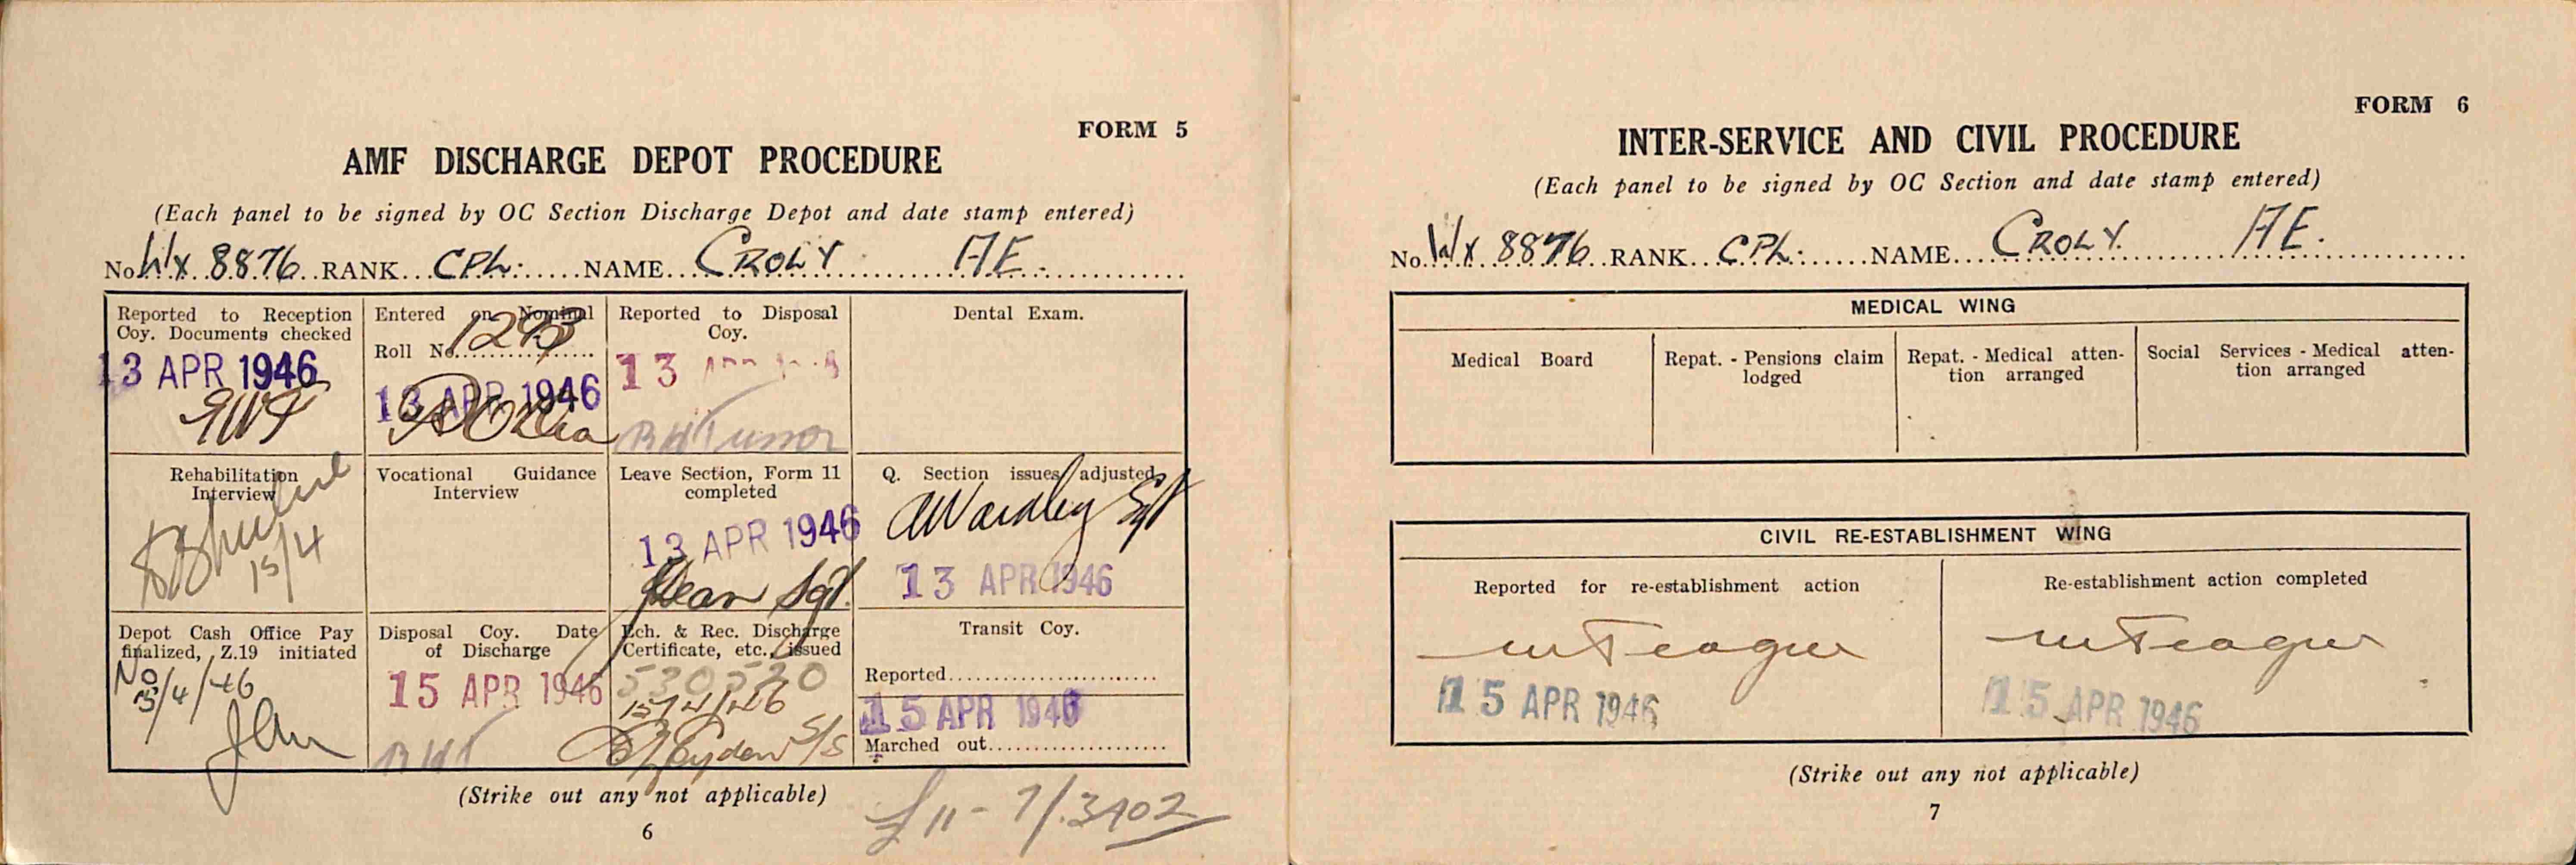 FORM 5
AMF DISCHARGE DEPOT PROCEDURE
(Each panel to be signed by OC Section Discharge Depot and date stamp entered)
No. Wx 8876 RANK CPL. NAME CROLY AE.
Reported to Reception
Coy. Documents checked
13 APR 1946
Entered on Nominal
Roll No. 1293
13 APR 1946
Reported to Disposal
Coy.
13
Dental Exam.
Rehabilitation
Interview
15/4
Vocational Guidance
Interview
Leave Section, Form 11
completed
13 APR 1946
Sgt.
Q. Section issues adjusted
AWardley Sgt
13 APR 1946
Depot Cash Office Pay
finalized, Z.19 initiated
No
15/4/46
Disposal Coy. Date
of Discharge
15 APR 1946
Ech. & Rec. Discharge
Certificate, etc., issued
530520
15/4/46
S/S
Transit Coy.
Reported
15 APR 1946
Marched out
(Strike out any not applicable)
6
FORM 6
INTER-SERVICE AND CIVIL PROCEDURE
(Each panel to be signed by OC Section and date stamp entered)
No. Wx 8876 RANK CPL. NAME CROLY. AE.
MEDICAL WING
Medical Board
Repat. - Pensions claim
lodged
Repat. - Medical atten-
tion arranged
Social Services - Medical atten-
tion arranged
CIVIL RE-ESTABLISHMENT WING
Reported for re-establishment action
mTeague
15 APR 1946
Re-establishment action completed
mTeague
15 APR 1946
(Strike out any not applicable)
7